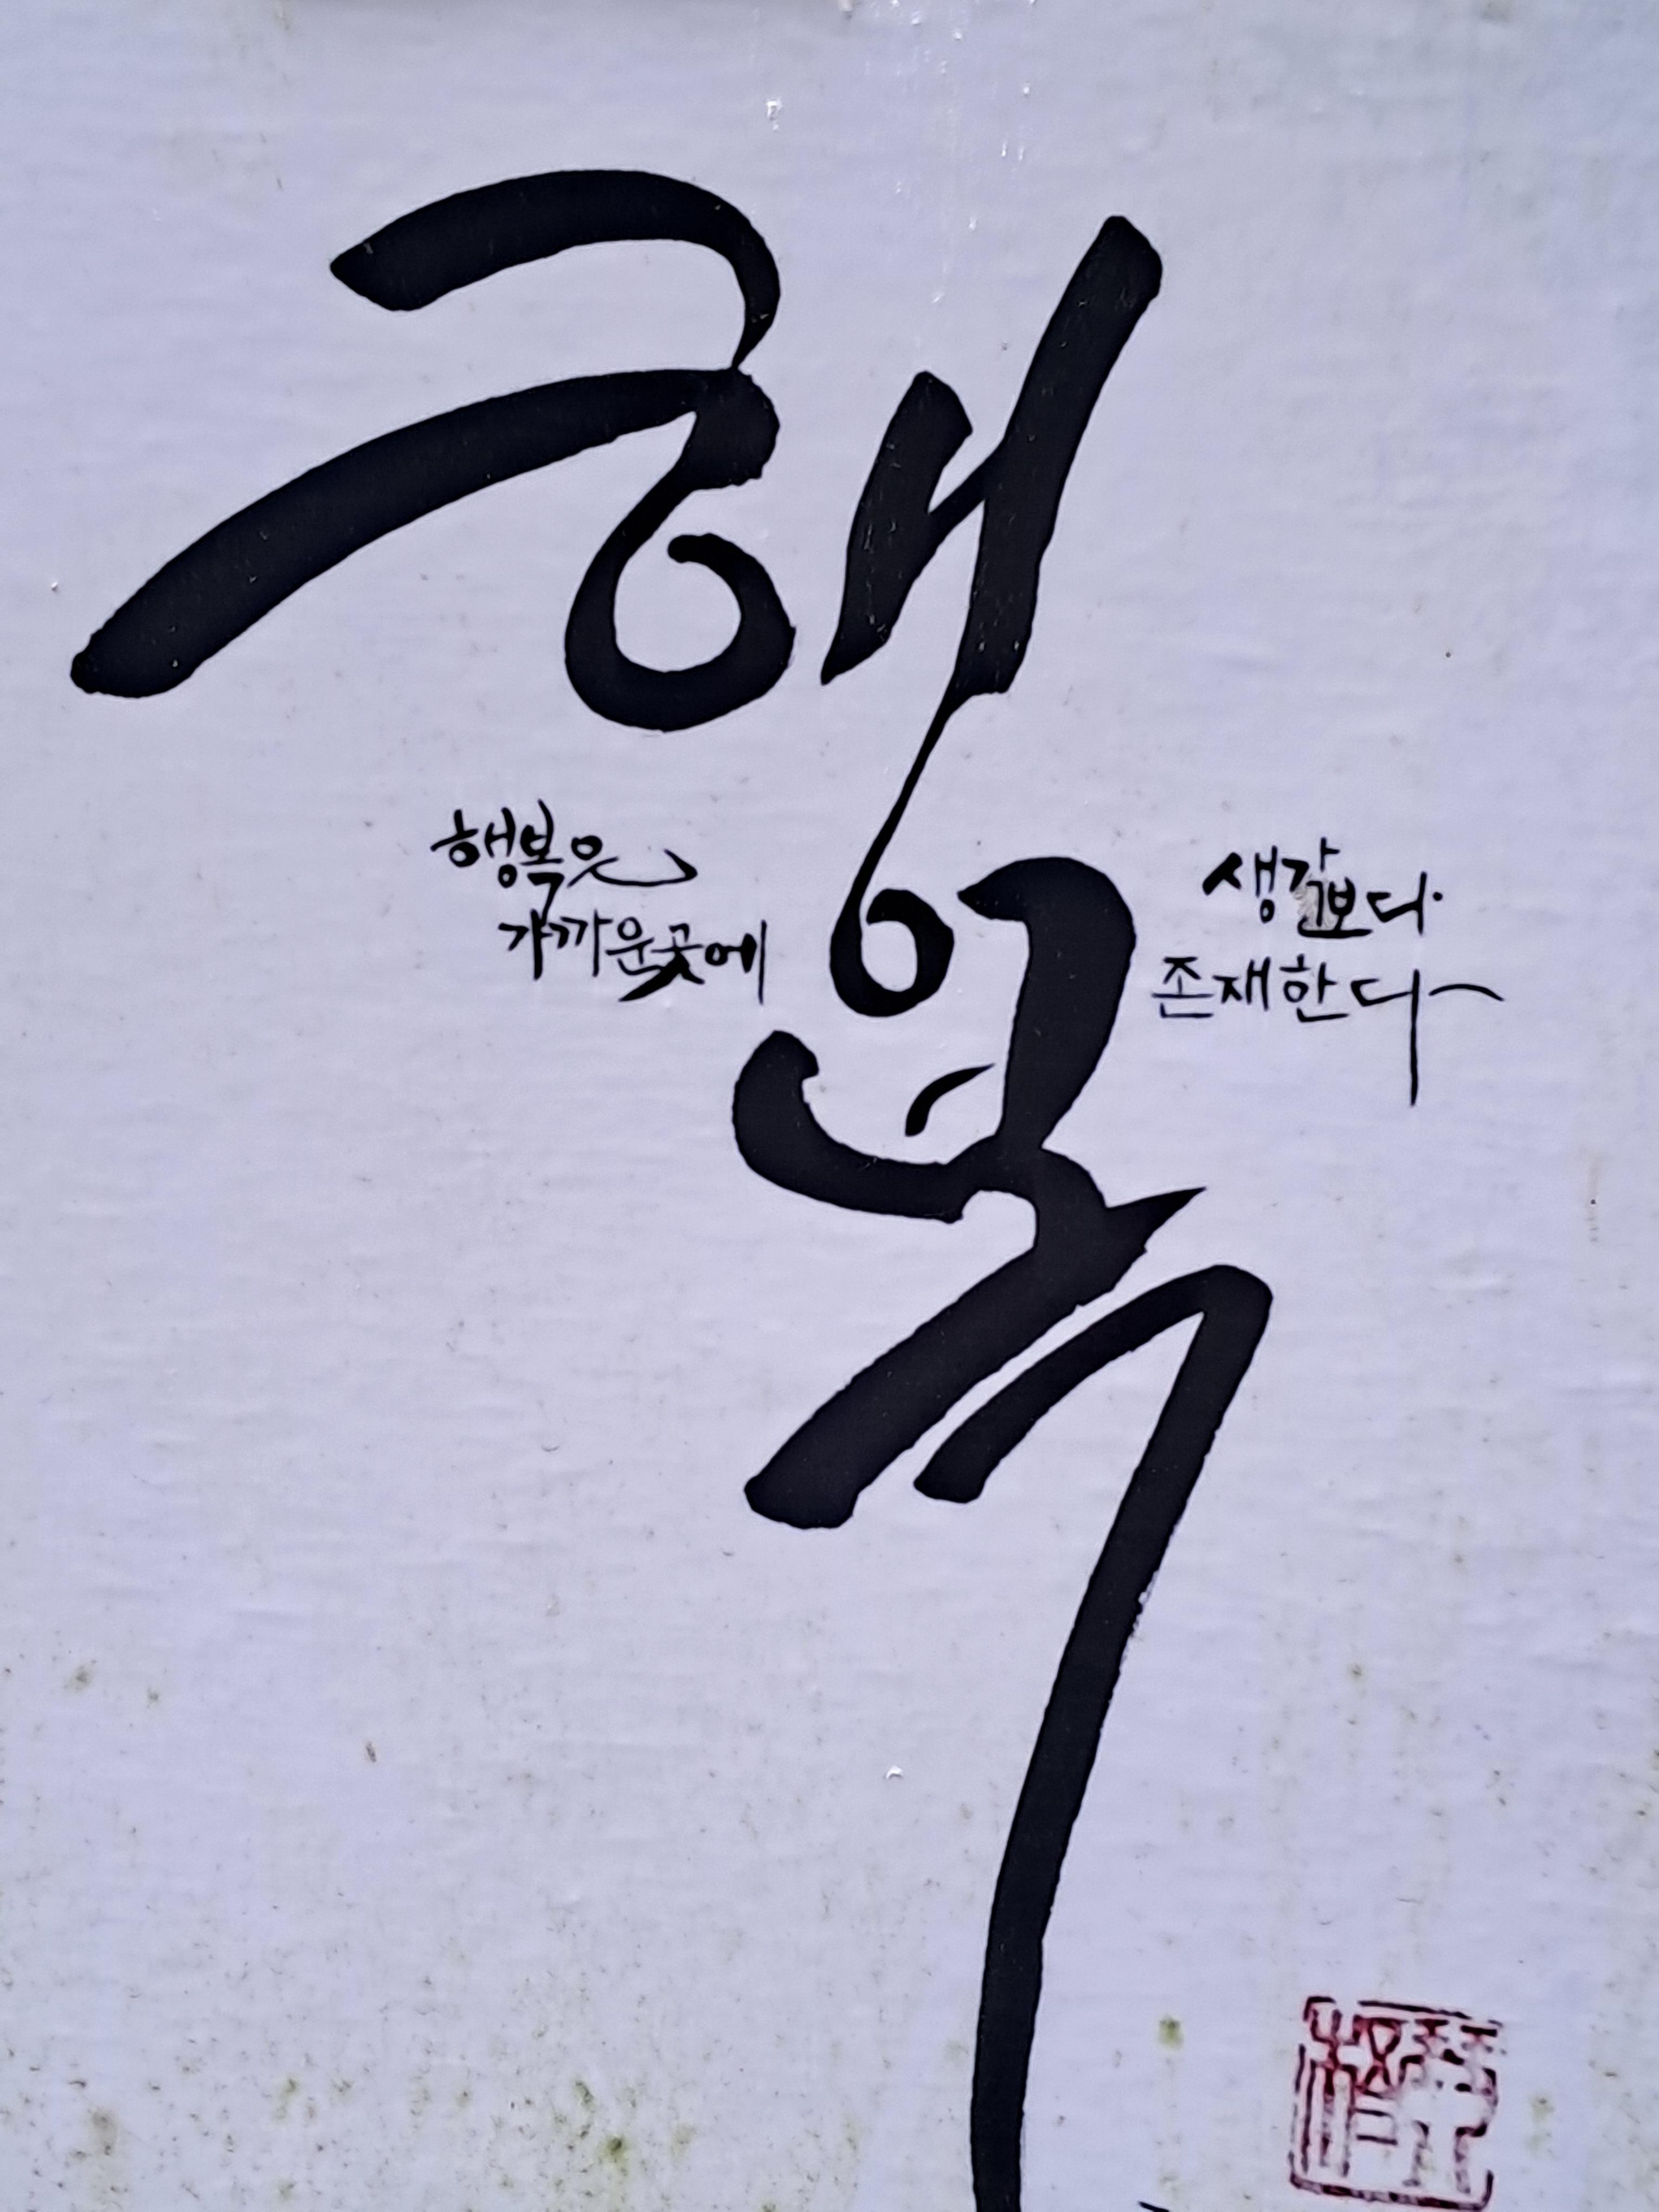 행복
행복은
가까운곳에
생각보다
존재한다